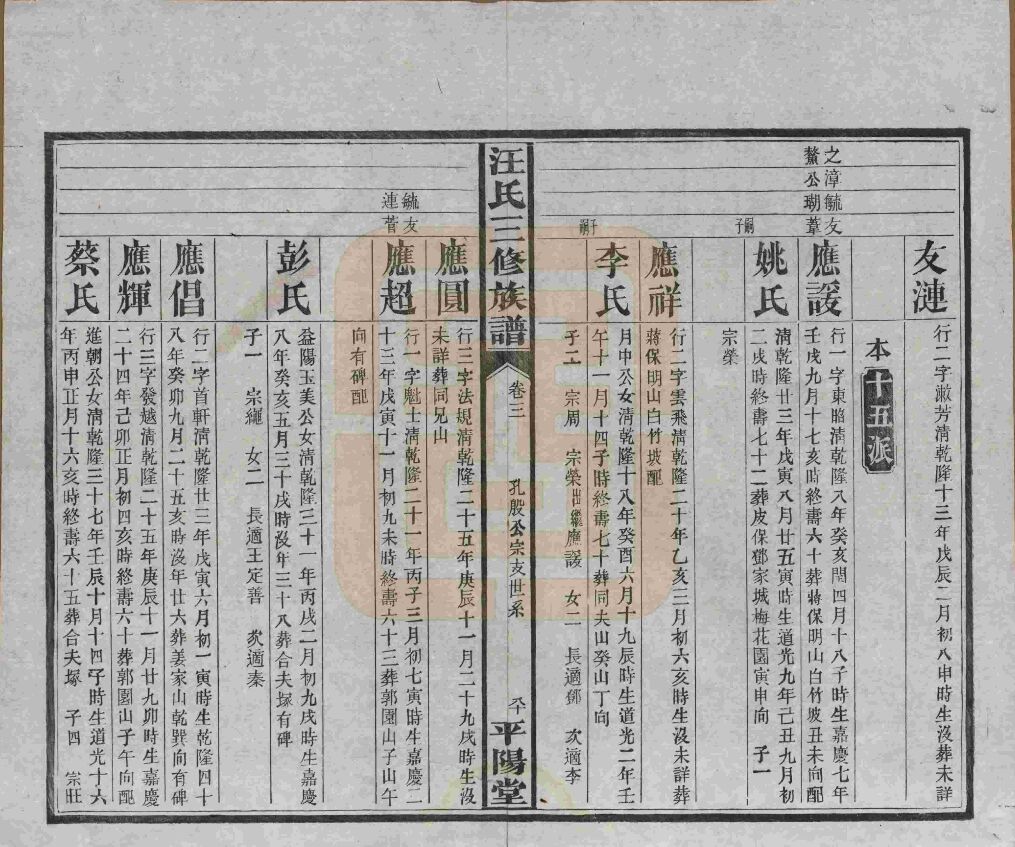 友漣
行二字淑芳清乾隆十三年戊辰二月初八申時生沒葬未詳
本十五派
之漳毓友
鰲公瑚葦
應諼
行一字東瞻清乾隆八年癸亥閏四月十八子時生嘉慶七年
壬戌九月十七亥時終壽六十葬蔣保明山白竹坡丑未向配
姚氏
嗣子
清乾隆廿三年戊寅八月廿五寅時生道光九年己丑九月初
二戌時終壽七十二葬皮保鄧家城梅花園寅申向 子一
宗榮
應祥
行二字雲飛清乾隆二十年乙亥三月初六亥時生沒未詳葬
蔣保明山白竹坡配
李氏
子嗣
月中公女清乾隆十八年癸酉六月十九辰時生道光二年壬
午十一月十四子時終壽七十葬同夫山癸山丁向
子二 宗周 宗榮出繼應諼 女二 長適鄧 次適李
汪氏三修族譜
卷三
孔殷公宗支世系
平陽堂
應圓
行三字法規清乾隆二十五年庚辰十一月二十九戌時生沒
未詳葬同兄山
毓友
連菅
應超
行一字魁士清乾隆二十一年丙子三月初七寅時生嘉慶二
十三年戊寅十一月初九未時終壽六十三葬郭園山子山午
向有碑配
彭氏
益陽玉美公女清乾隆三十一年丙戌二月初九戌時生嘉慶
八年癸亥五月三十戌時沒年三十八葬合夫塚有碑
子一 宗繩 女二 長適王定善 次適秦
應倡
行二字首軒清乾隆廿三年戊寅六月初一寅時生乾隆四十
八年癸卯九月二十五亥時沒年廿六葬姜家山乾巽向有碑
應輝
行三字發越清乾隆二十五年庚辰十一月廿九卯時生嘉慶
二十四年己卯正月初四亥時終壽六十葬郭園山子午向配
蔡氏
進朝公女清乾隆三十七年壬辰十月十四子時生道光十六
年丙申正月十六亥時終壽六十五葬合夫塚 子四 宗旺